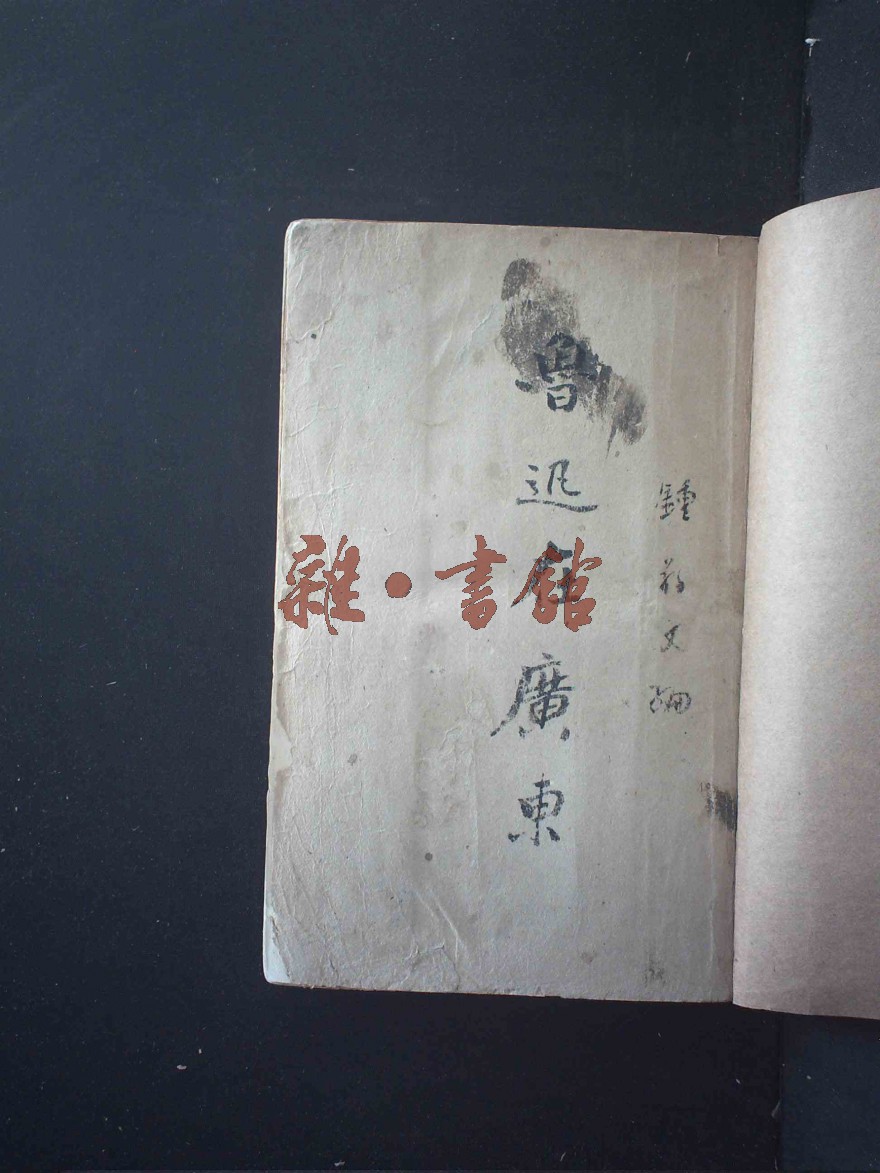 鍾敬文編
魯迅在廣東
雜·書館